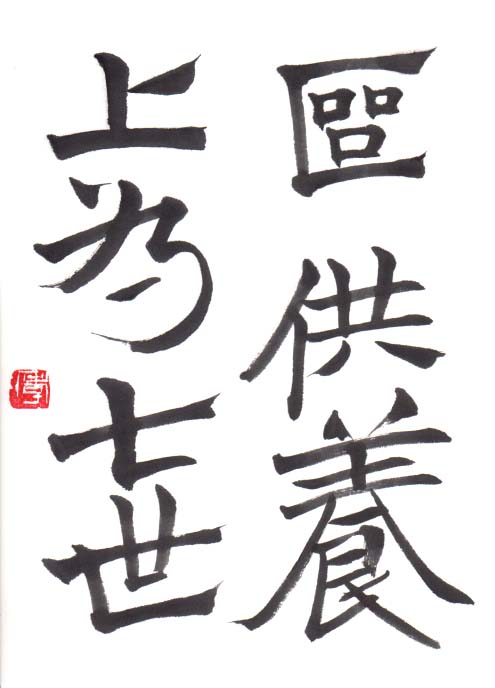 區供養
上为七世